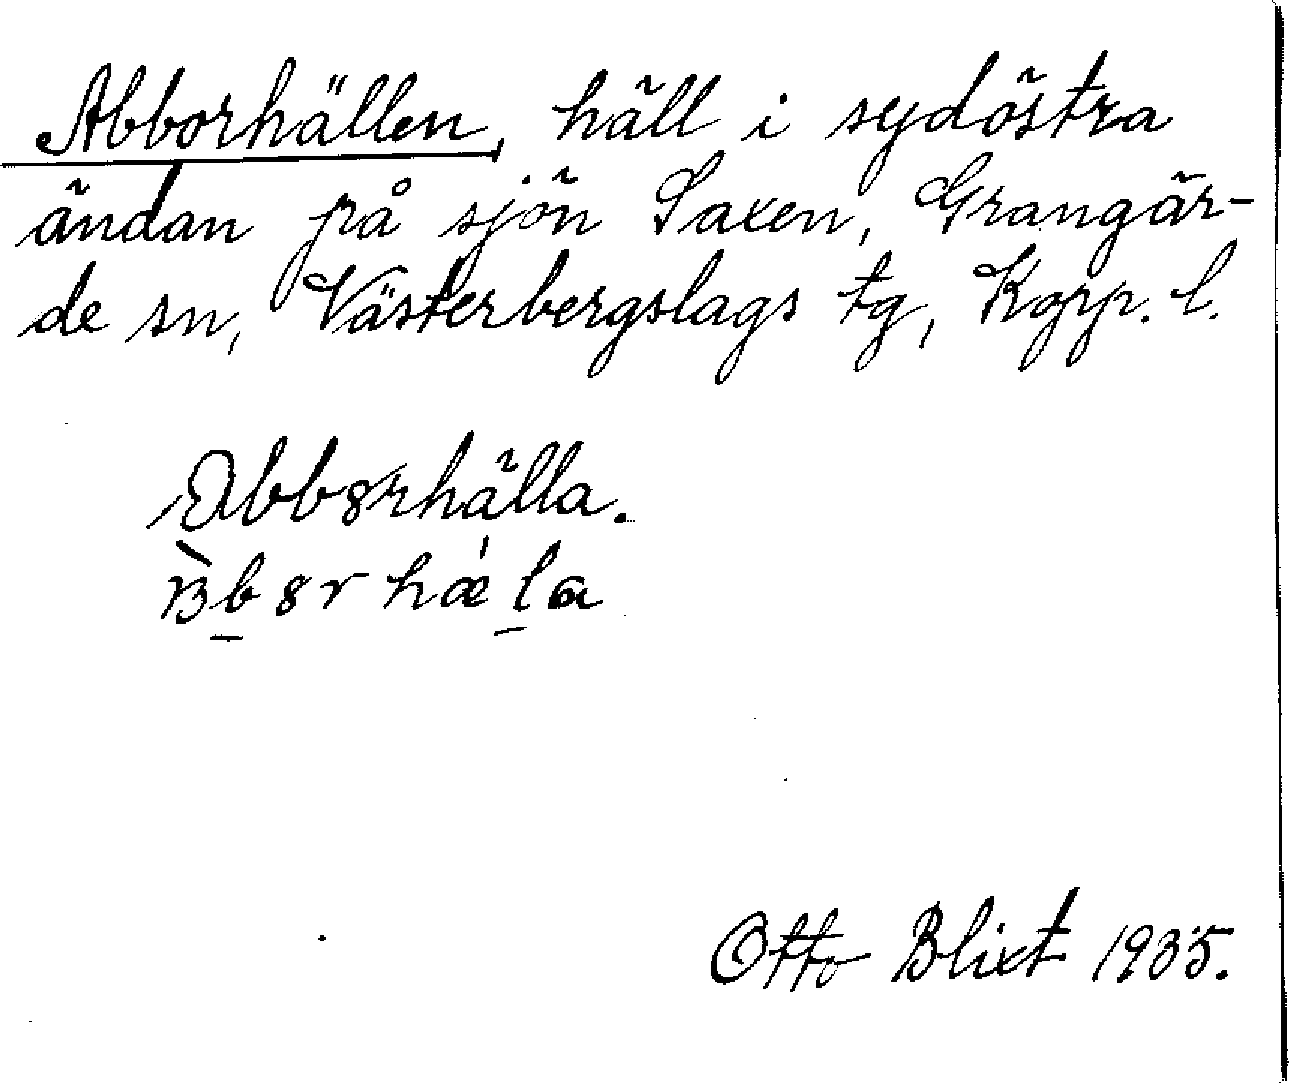 Abborhällen, häll i sydöstra
ändan på sjön Saxen, Grangär-
de sn, Västerbergslags tg, Kopp. l.
Abbørhälla.
Otto Blixt 1935.